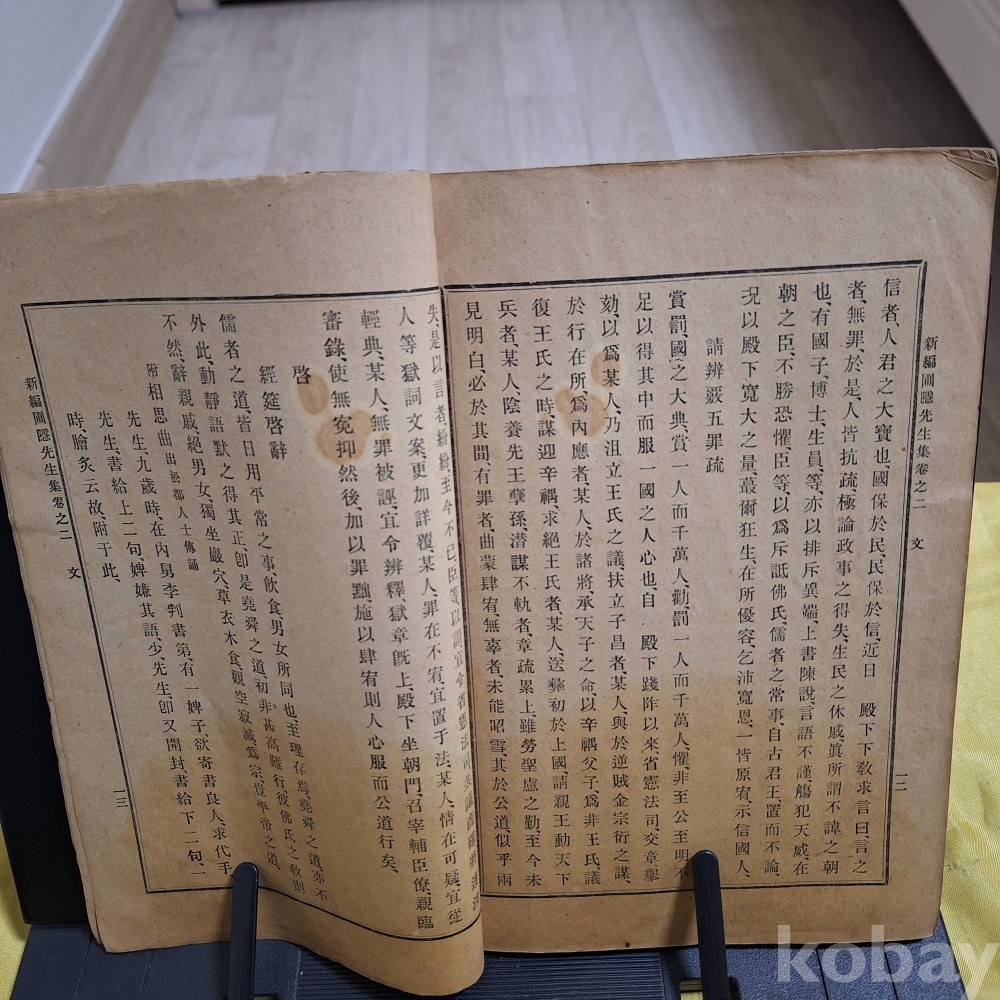 新編圃隱先生集卷之二 文 一二
信者、人君之大寶也、國保於民、民保於信、近日 殿下下敎求言曰、言之
者、無罪、於是、人皆抗疏、極論政事之得失、生民之休戚、眞所謂不諱之朝
也、有國子、博士、生員、等、亦以排斥異端、上書陳說、言語不謹、觸犯天威、在
朝之臣、不勝恐懼、臣等、以爲斥詆佛氏、儒者之常事、自古君王、置而不論、
况以殿下寬大之量、蕞爾狂生、在所優容、乞沛寬恩、一皆原宥、示信國人、
請辨覈五罪疏
賞罰、國之大典、賞一人而千萬人、勸、罰一人而千萬人、懼、非至公至明、不
足以得其中而服一國之人心也、自 殿下踐阼以來、省憲法司、交章擧
劾、以爲某人、乃沮立王氏之議、扶立子昌者、某人、與於逆賊金宗衍之謀、
於行在所、爲內應者、某人、於諸將、承天子之命、以辛禑父子、爲非王氏、議
復王氏之時、謀迎辛禑、求絕王氏者、某人、送彝初於上國、請親王動天下
兵者、某人、陰養先王孽孫、潜謀不軌者、章疏累上、雖勞聖慮之勤、至今未
見明白、必於其間、有罪者、曲蒙肆宥、無辜者、未能昭雪、其於公道、似乎兩
失、是以言者、紛紛、至今不已、臣等、以謂宜令省憲法司、共議
人等獄詞文案、更加詳覆、某人、罪在不宥、宜置于法、某人、情在可疑、宜從
輕典、某人、無罪被誣、宜令辨釋、獄章旣上、殿下坐朝門、召宰輔臣僚、親臨
審錄、使無寃抑然後、加以罪黜、施以肆宥則人心服而公道行矣、
啓
經筵啓辭
儒者之道、皆日用平常之事、飮食、男女所同也、至理存焉、堯舜之道、亦不
外此、動靜語默之得其正、卽是堯舜之道、初非甚高難行、彼佛氏之敎則
不然、辭親戚、絕男女、獨坐巖穴、草衣木食、觀空寂滅、爲宗、豈平常之道、
附相思曲 出松都人士傳誦
先生、九歲時、在內舅李判書第、有一婢子欲寄書良人、求代手、
先生、書給上二句、婢嫌其語少、先生、卽又開封書給下二句、一
時、膾炙云故、附于此、
新編圃隱先生集卷之二 文 一三
kobay